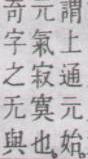 謂上通元始。
元氣寂寞也。
奇字之无與